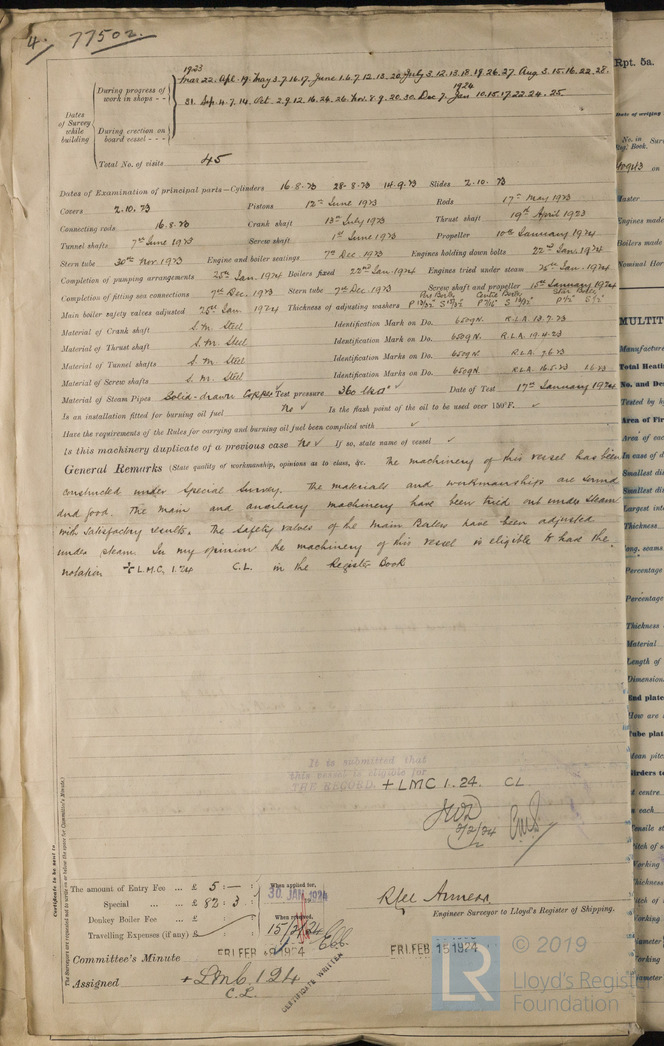 4. 77502.
1923
Mar 22. Apl. 19. May 3.7.16.17. June 1.6.7.12.13.20. July 3.12.13.18.19.26.27. Aug 3.15.16.22.28.
1924
31. Sep. 4.7.14. Oct. 2.9.12.16.24.26. Nov. 8.9.20.30. Dec 7. Jan 10.15.17.22.24.25.
Dates of Survey while building
During progress of work in shops - -
During erection on board vessel - - -
Total No. of visits 45
Dates of Examination of principal parts—Cylinders 16.8.23 28.8.23 14.9.23 Slides 2.10.23
Covers 2.10.23 Pistons 12th June 1923 Rods 17th May 1923
Connecting rods 16.8.23 Crank shaft 13th July 1923 Thrust shaft 19th April 1923
Tunnel shafts 7th June 1923 Screw shaft 1st June 1923 Propeller 10th January 1924
Stern tube 30th Nov. 1923 Engine and boiler seatings 7th Dec 1923 Engines holding down bolts 22nd Jan. 1924
Completion of pumping arrangements 25th Jan. 1924 Boilers fixed 22nd Jan. 1924 Engines tried under steam 25th Jan. 1924
Completion of fitting sea connections 7th Dec. 1923 Stern tube 7th Dec. 1923 Screw shaft and propeller 15th January 1924
Main boiler safety valves adjusted 25th Jan 1924 Thickness of adjusting washers
Material of Crank shaft S. M. Steel Identification Mark on Do. 6509N. R.L.A. 13.7.23
Material of Thrust shaft S. M. Steel Identification Mark on Do. 6509N. R.L.A. 19.4.23
Material of Tunnel shafts S. M. Steel Identification Marks on Do. 6509N. R.L.A. 7.6.23
Material of Screw shafts S. M. Steel Identification Marks on Do. 6509N. R.L.A. 16.5.23 1.6.23
Material of Steam Pipes Solid-drawn Copper ✓ Test pressure 360 lbs □" ✓ Date of Test 17th January 1924
Is an installation fitted for burning oil fuel No ✓ Is the flash point of the oil to be used over 150°F. ✓
Have the requirements of the Rules for carrying and burning oil fuel been complied with ✓
Is this machinery duplicate of a previous case No ✓ If so, state name of vessel ✓
General Remarks (State quality of workmanship, opinions as to class, &c. The machinery of this vessel has been
constructed under Special Survey. The materials and workmanships are sound
and good. The main and auxiliary machinery have been tried out under steam
with satisfactory results. The safety valves of the main Boilers have been adjusted
under steam. In my opinion the machinery of this vessel is eligible to have the
notation + L.M.C. 1.24 C.L. in the Register Book
It is submitted that
this vessel is eligible for
THE RECORD. + LMC 1.24. CL
2/2/24
Certificate to be sent to
The Surveyors are requested not to write on or below the space for Committee's Minute.
The amount of Entry Fee ... £ 5 : — :
Special ... ... £ 83 : 3 :
Donkey Boiler Fee ... £
Travelling Expenses (if any) £
When applied for,
30. JAN. 1924
When received,
15/2/24
Engineer Surveyor to Lloyd's Register of Shipping.
Committee's Minute FRI. FEB 1924 FRI. FEB 15 1924
Assigned + LMC 1.24
C.L.
CERTIFICATE WRITTEN
LR
© 2019
Lloyd's Register
Foundation
Rpt. 5a.
Date of writing
No. in
Reg. Book.
on
Master
Engines made
Boilers made
Nominal Hor
MULTIT
Manufacture
Total Heati
No. and De
Tested by h
Area of Fir
Area of eac
In case of d
Smallest dis
Smallest dis
Largest inte
Thickness
long. seams
Percentage
Percentage
Thickness
Material
Length of
Dimension
End plate
How are
Tube plat
Mean pitc
Girders to
centre
each
Tensile st
Pitch of s
Working
Thickness
Working
Diameter
Working
Diameter